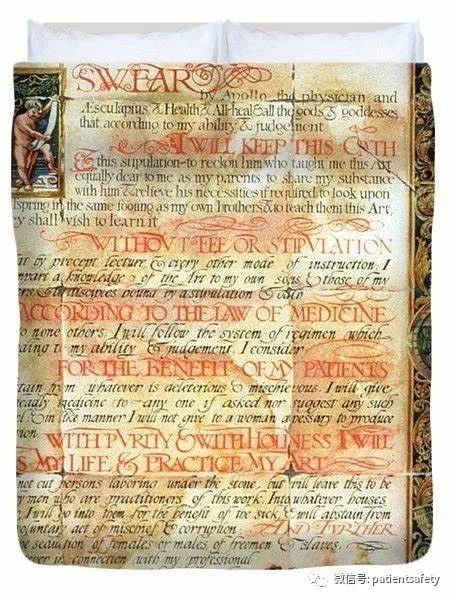 SWEAR
by Apollo the physician and
Æsculapius & Health & All-heal & all the gods & goddesses
that according to my ability & judgement
I WILL KEEP THIS OATH
& this stipulation - to reckon him who taught me this Art
equally dear to me as my parents to share my substance
with him & relieve his necessities if required to look upon
ffspring in the same footing as my own brothers & to teach them this Art,
y shall wish to learn it
WITHOUT FEE OR STIPULATION
at by precept lecture & every other mode of instruction I
impart a knowledge of the Art to my own sons & those of my
ers & to disciples bound by a stipulation & oath
ACCORDING TO THE LAW OF MEDICINE
to none others. I will follow the system of regimen which
ding to my ability & judgement I consider
FOR THE BENEFIT OF MY PATIENTS
tain from whatever is deleterious & mischievous. I will give
deadly medicine to any one if asked nor suggest any such
el & in like manner I will not give to a woman a pessary to produce
WITH PVRITY & WITH HOLINESS I WILL
S MY LIFE & PRACTICE MY ART
not cut persons laboring under the stone, but will leave this to be
by men who are practitioners of this work. Into whatever houses
I will go into them for the benefit of the sick & will abstain from
voluntary act of mischief & corruption AND FVRTHER
he seduction of females or males, of freemen & slaves.
ever in connection with my professional
微信号: patientsafety